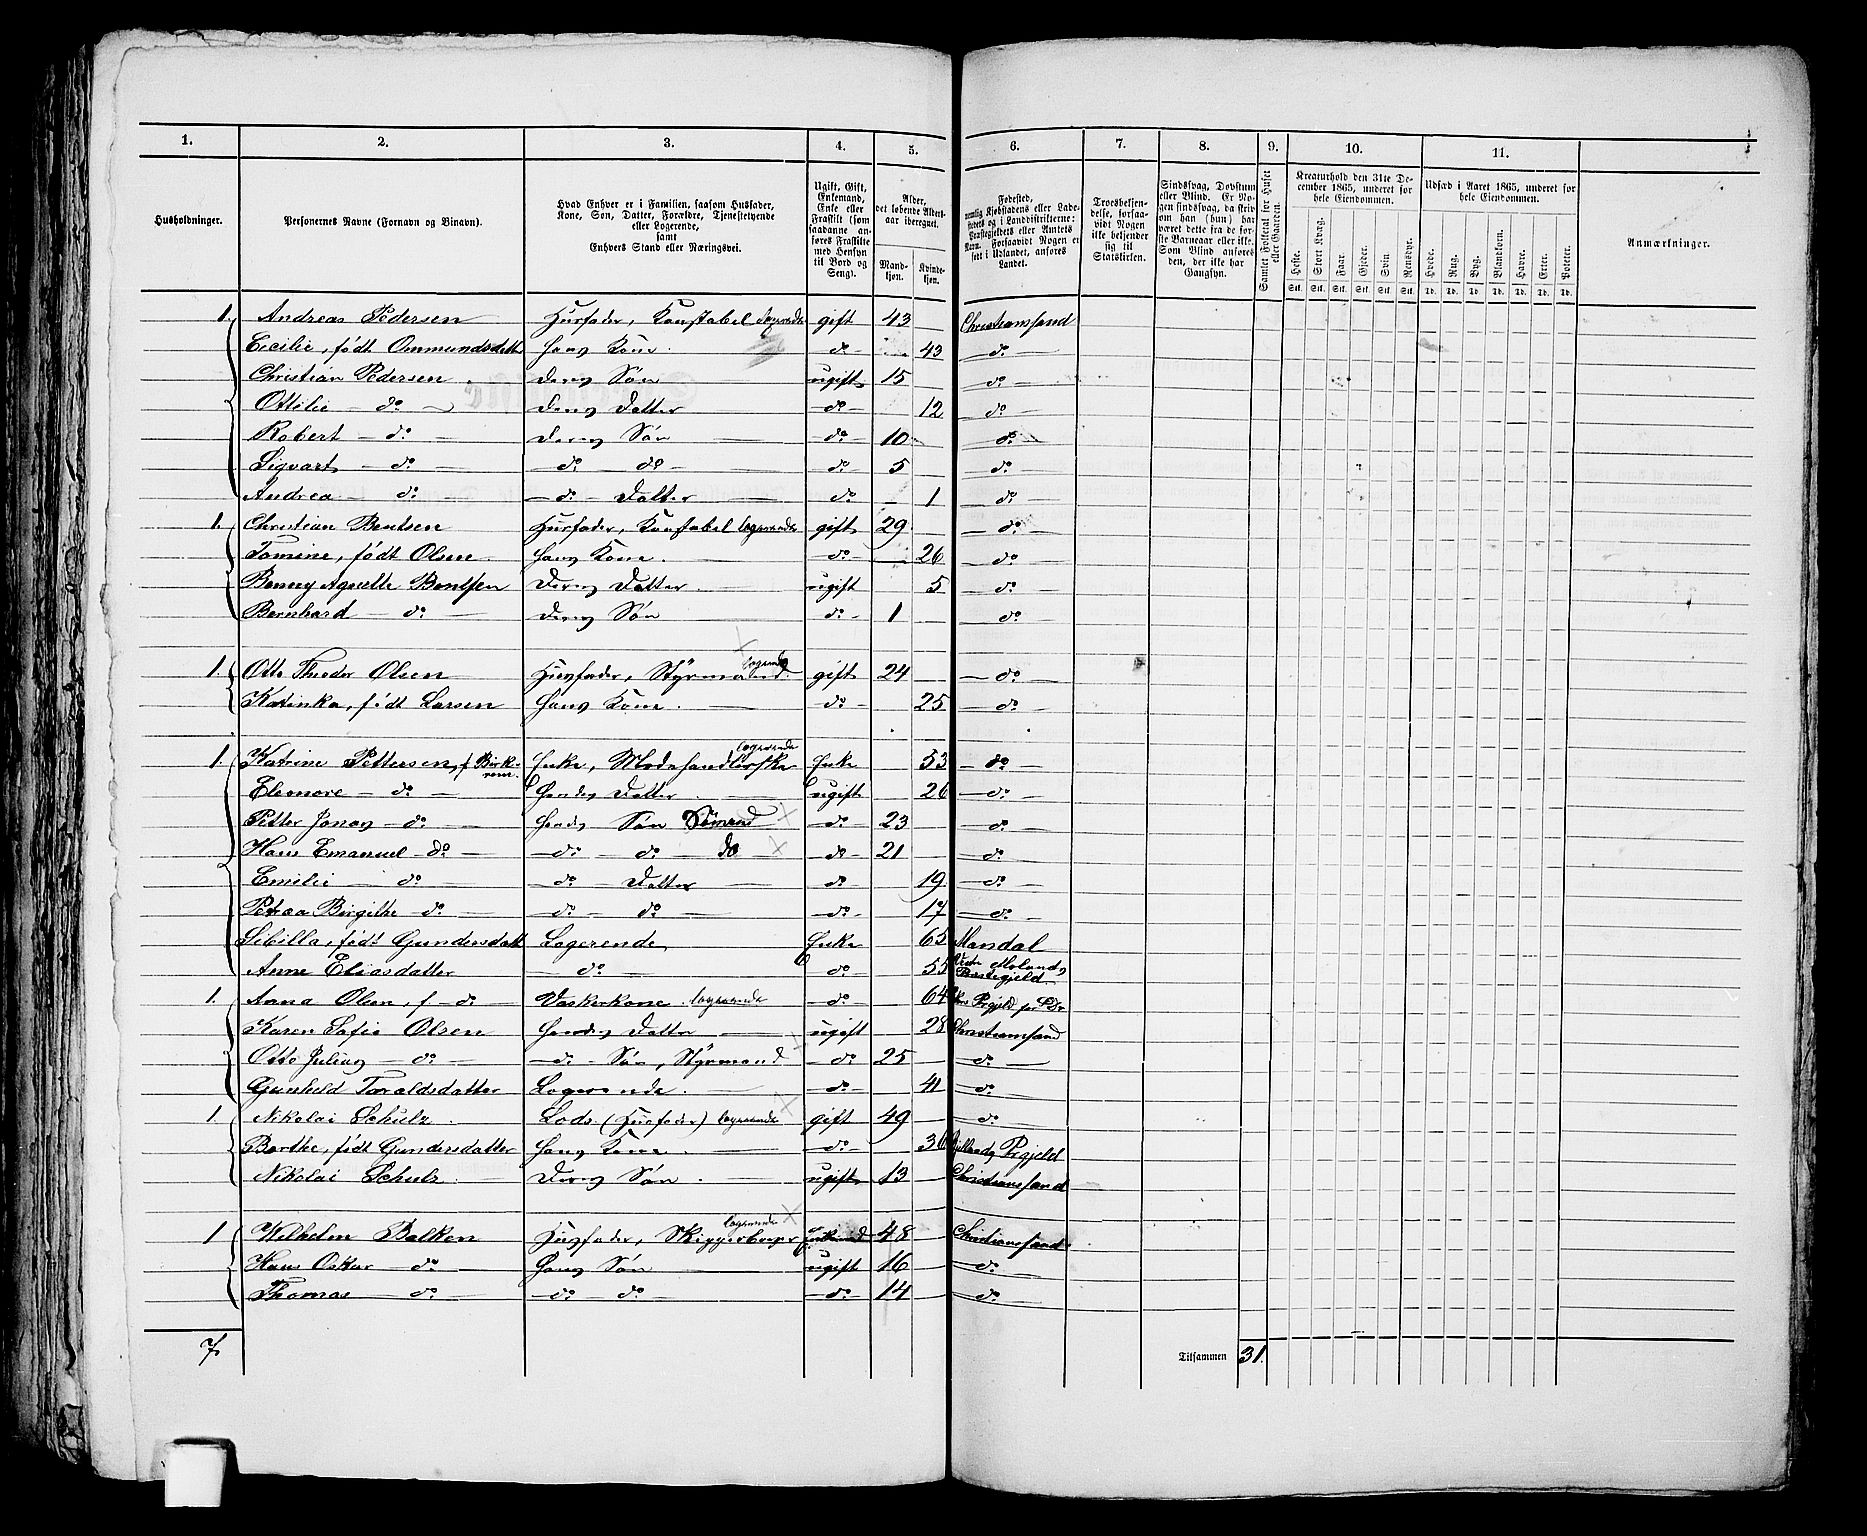 1. 2. 3. 4. 5. 6. 7. 8. 9. 10. 11.
Husholdninger.
Personernes Navne (Fornavn og Binavn).
Hvad Enhver er i Familien, saasom Husfader, Kone, Søn, Datter, Forældre, Tjenestetyende eller Logerende, samt Enhvers Stand eller Næringsvei.
Ugift, Gift, Enkemand, Enke eller Fraskilt (som saadanne anføres Fraskilte med Hensyn til Bord og Seng).
Alder, det løbende Alders-aar iberegnet.
Mand-kjøn. Kvinde-kjøn.
Fødested, nemlig Kjøbstadens eller Ladestedets og i Landdistrikterne: Præstegjeldets eller Amtets Navn. Forsaavidt Nogen er født i Udlandet, anføres Landet.
Troesbekjendelse, forsaavidt Nogen ikke bekjender sig til Statskirken.
Sindssvag, Døvstum eller Blind. Er Nogen sindssvag, da skrives om han (hun) har været dette fra de første Barneaar eller ikke. Som Blind anføres den, der ikke har Gangsyn.
Samlet Folketal for Huset eller Gaarden.
Kreaturhold den 31te December 1865, underet for hele Eiendommen.
Heste. Stort Kvæg. Faar. Gjeder. Svin. Rensdyr.
Stk. Stk. Stk. Stk. Stk. Stk.
Udsæd i Aaret 1865, underet for hele Eiendommen.
Hvede. Rug. Byg. Blandkorn. Havre. Erter. Poteter.
Td. Td. Td. Td. Td. Td. Td.
Anmærkninger.
1. Andreas Pedersen Husfader, Konstabel logerende gift 43 Christianssand
Cecilie, født Ommundsdatter hans Kone. do 43 do
Christian Pedersen deres Søn ugift 15 do
Ottilie do deres Datter do 12 do
Robert do deres Søn do 10 do
Sigvart do do do do 5 do
Andrea do do Datter do 1 do
1. Christian Bentsen Husfader, Konstabel logerende gift 29 do
Tomine, født Olsen hans Kone. do 26 do
Benny Agnethe Bentsen Deres Datter ugift 5 do
Bernhard do deres Søn do 1 do
1. Otto Theodor Olsen Husfader, Styrmand. logerende gift 24 do
Katinka, født Larsen hans Kone. do 25 do
1. Katrine Pettersen, f Birkrem. Enke, Modehandlerske logerende Enke 53 do
Eleonore do hendes Datter ugift 26 do
Petter Jonas do hendes Søn Sömand do 23 do
Hans Emanuel do do do do do 21 do
Emilie do do Datter do 19 do
Petrea Birgithe do do do do 17 do
Sibilla, født Gundersdatt Logerende Enke 65 Mandal
Anne Eliasdatter do do 55 Vestre Molands Præstegjeld
1. Anna Olsen, f do Vaskerkone. logerende do 64 Prgjeld
Karen Sofie Olsen hendes Datter ugift 28 Christianssand
Otto Julius do do Søn, Styrmand do 25 do
Gunhild Taraldsdatter Logerende. do 41 do
1. Nikolai Schulz Lods. (Husfader) logerende gift 49 do
Berthe, født Gundersdatter hans Kone do 36 Prgjeld
Nikolai Schulz deres Søn ugift 13 Christianssand
1 Wilhelm Balken Husfader, logerende Enkemand 48 Christianssand
Hans Oskar do hans Søn ugift 16 do
Thomas do do do do 14 do
7. Tilsammen 31.